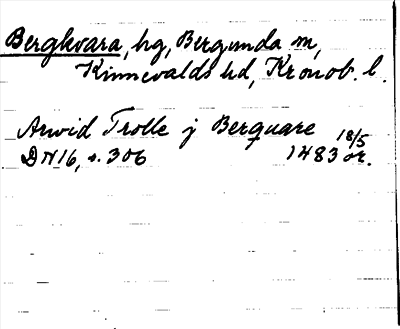 Bergkvara, hg, Bergunda sn,
Kinnevalds hd, Kronob. l.
Arvid Trolle j Berquare 18/5
DN 16, s. 306 1483 or.